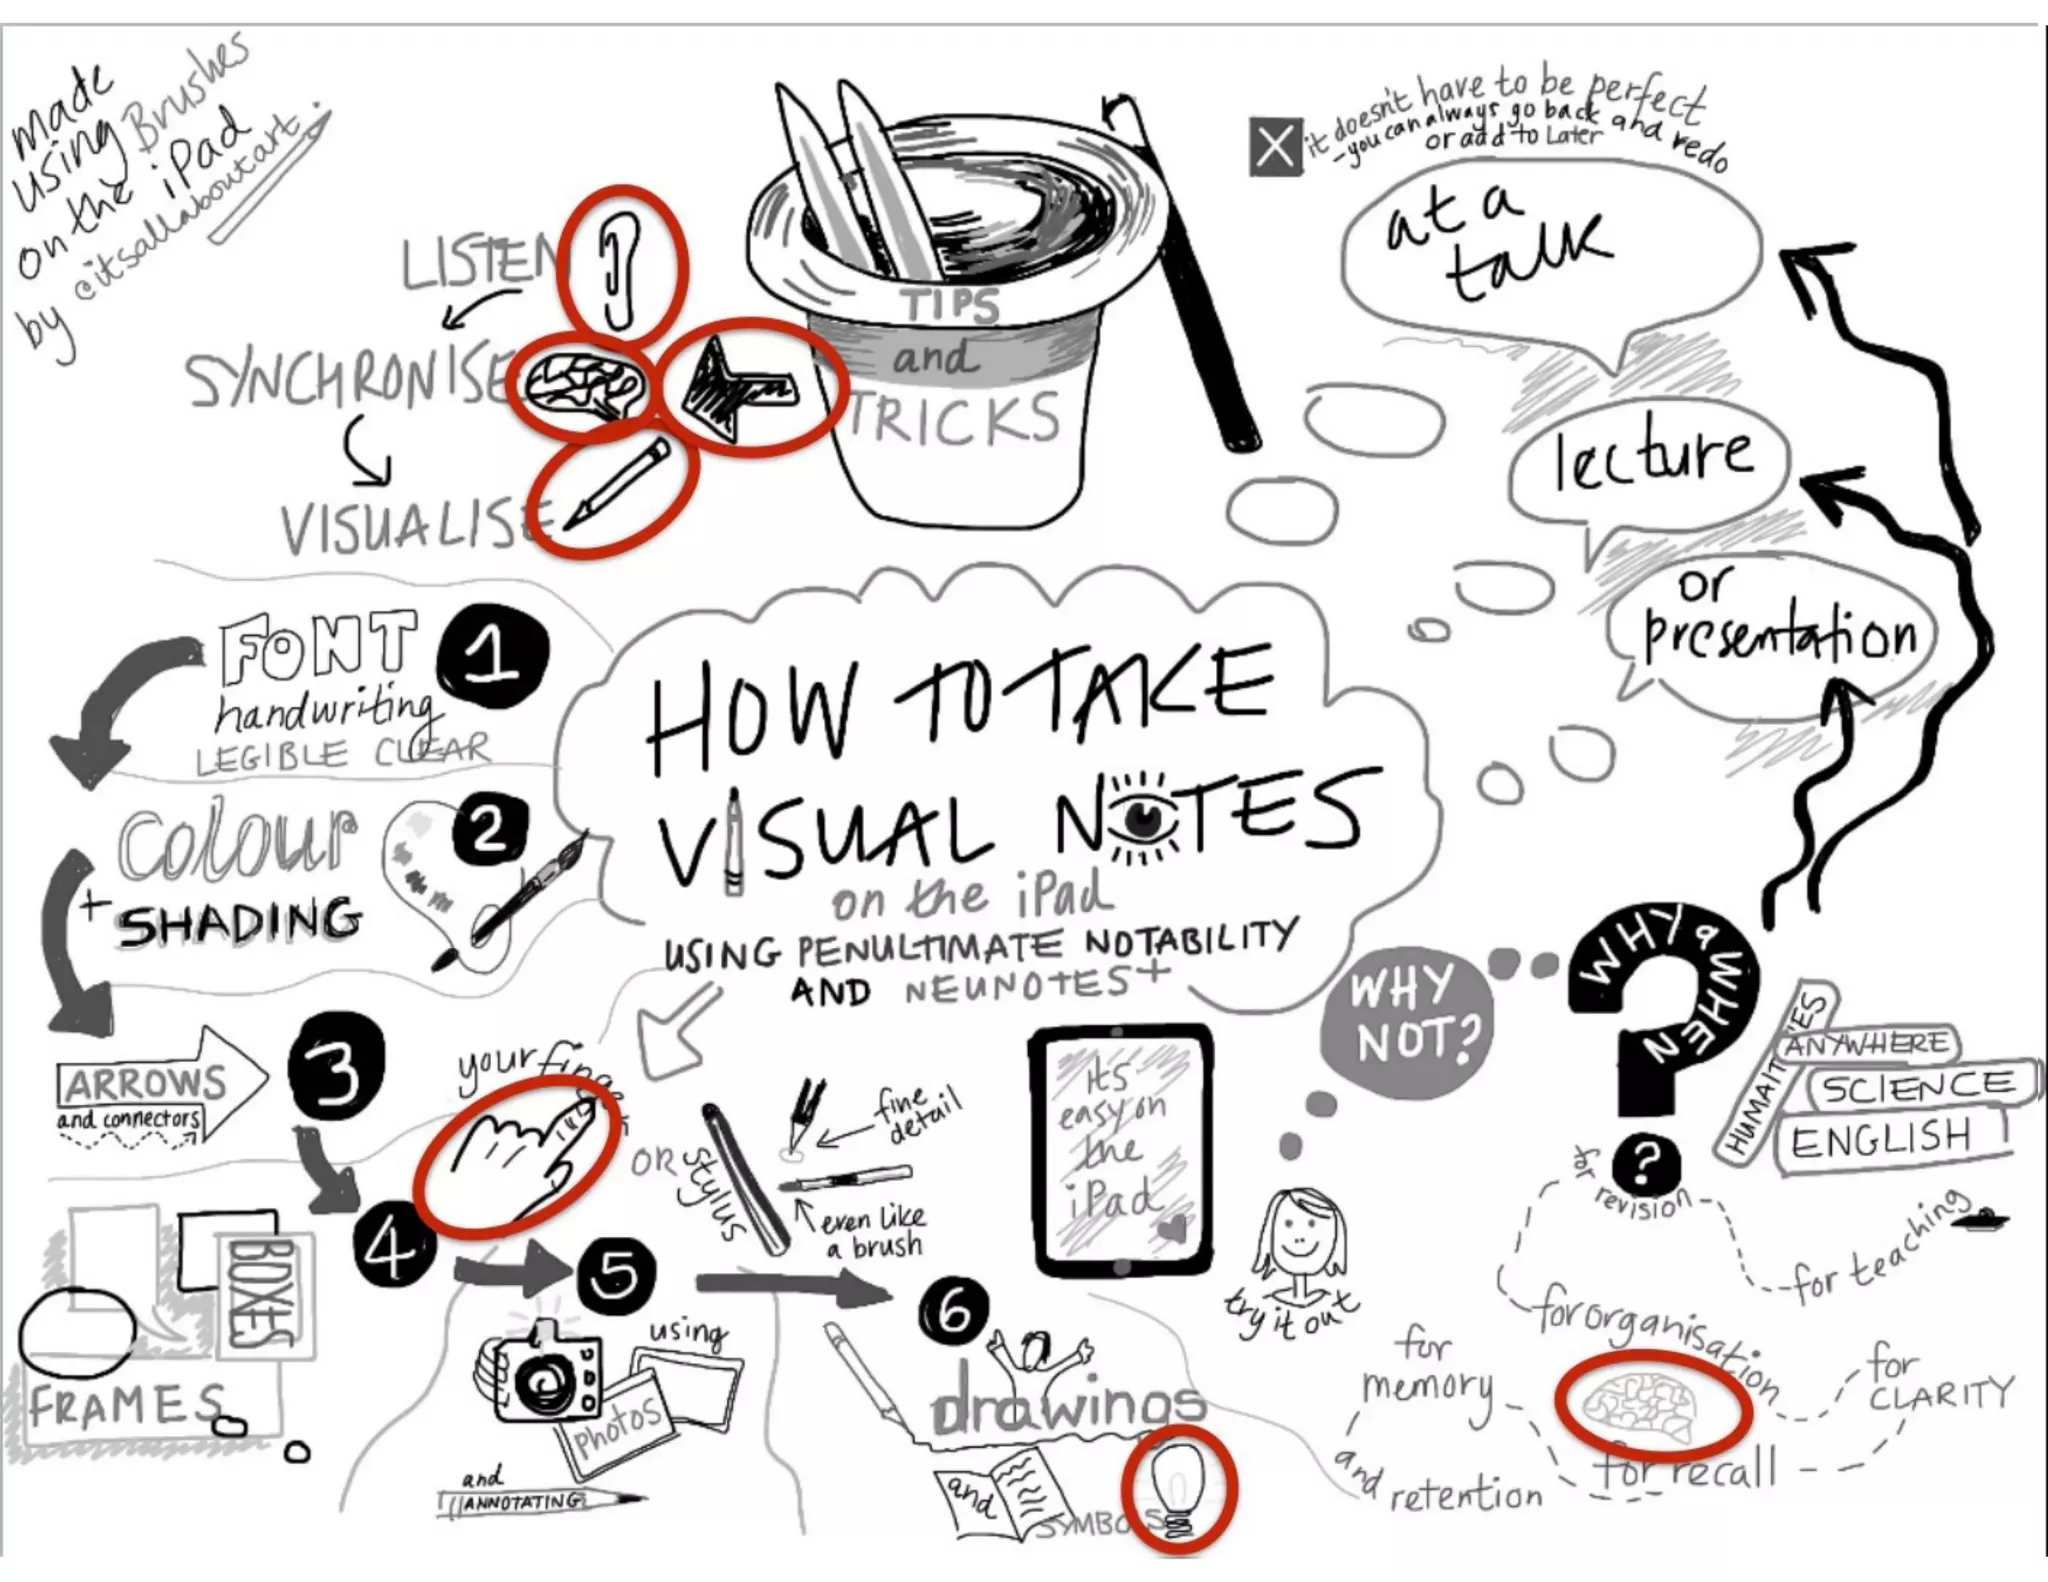 made
using Brushes
on the iPad
by @itsallaboutart.
LISTEN
SYNCHRONISE
VISUALISE
TIPS
and
TRICKS
it doesn't have to be perfect
- you can always go back and redo
or add to Later
at a
talk
lecture
or
presentation
FONT
handwriting
LEGIBLE CLEAR
1
Colour
+ SHADING
2
ARROWS
and connectors
3
BOXES
FRAMES
4
HOW TO TAKE
VISUAL NOTES
on the iPad
USING PENULTIMATE NOTABILITY
AND NEUNOTES+
your finger
OR
stylus
fine
detail
even like
a brush
5
using
photos
and
ANNOTATING
6
drawings
and
SYMBOLS
It's
easy on
the
iPad
WHY
NOT?
try it out
WHY & WHEN
?
HUMANITIES
ANYWHERE
SCIENCE
ENGLISH
for revision
for teaching
for organisation
for
CLARITY
for recall
for
memory
and retention